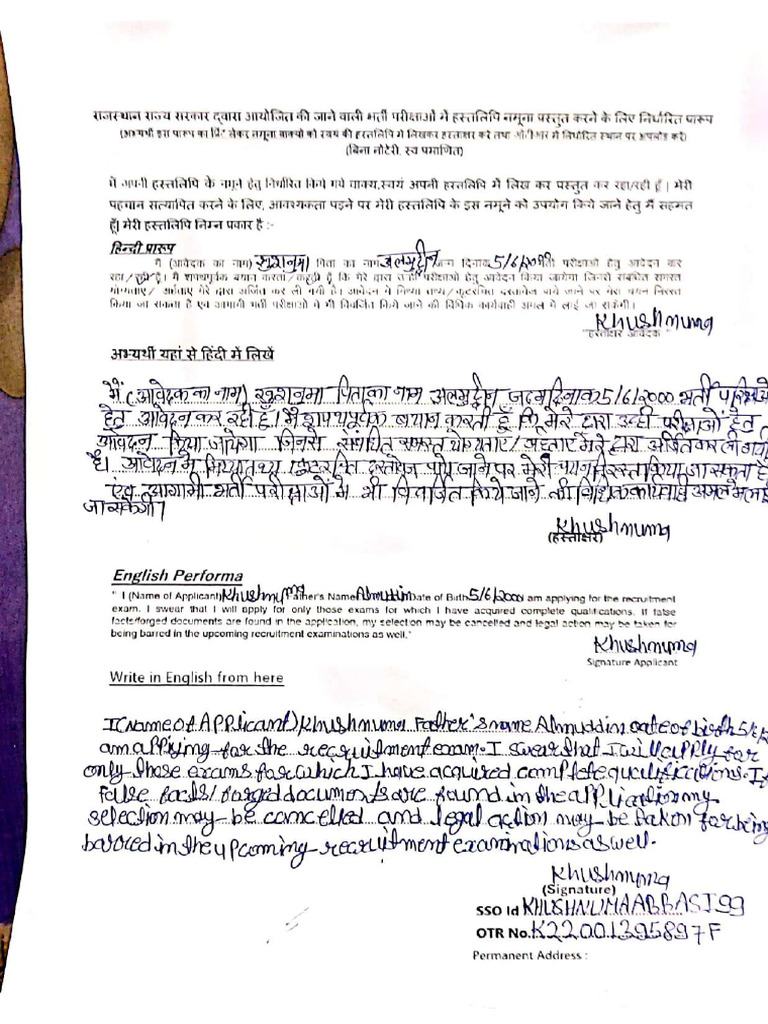 राजस्थान राज्य सरकार द्वारा आयोजित की जाने वाली भर्ती परीक्षाओं में हस्तलिपि नमूना प्रस्तुत करने के लिए निर्धारित प्रारूप
(अभ्यर्थी इस प्रारूप का प्रिंट लेकर नमूना वाक्यों को स्वयं की हस्तलिपि में लिखकर हस्ताक्षर करें तथा ओटीआर में निर्धारित स्थान पर अपलोड करें)
(बिना नोटेरी, स्व प्रमाणित)
मैं अपनी हस्तलिपि के नमूने हेतु निर्धारित किये गये वाक्य,स्वयं अपनी हस्तलिपि में लिख कर प्रस्तुत कर रहा/रही हूँ । मेरी
पहचान सत्यापित करने के लिए, आवश्यकता पड़ने पर मेरी हस्तलिपि के इस नमूने को उपयोग किये जाने हेतु मैं सहमत
हूँ। मेरी हस्तलिपि निम्न प्रकार है :-
हिन्दी प्रारूप
मैं (आवेदक का नाम) खुशनुमा पिता का नाम अलमुद्दीन जन्म दिनांक 5/6/2000 परीक्षाओं हेतु आवेदन कर
रहा/रही हूँ। मैं शपथपूर्वक बयान करता/करती हूँ कि मेरे द्वारा उन्हीं परीक्षाओं हेतु आवेदन किया जायेगा जिनसे संबंधित समस्त
योग्यताएं/ अर्हताएं मेरे द्वारा अर्जित कर ली गयी है। आवेदन में मिथ्या तथ्य/कूटरचित दस्तावेज पाये जाने पर मेरा चयन निरस्त
किया जा सकता है एवं आगामी भर्ती परीक्षाओं में भी विवर्जित किये जाने की विधिक कार्यवाही अमल में लाई जा सकेगी।
Khushnuma
हस्ताक्षर आवेदक
अभ्यर्थी यहां से हिंदी में लिखें
मैं (आवेदक का नाम) खुशनुमा पिता का नाम अलमुद्दीन जन्म दिनांक 5/6/2000 भर्ती परिक्षाओ
हेतु आवेदन कर रही हूँ। मैं शपथपूर्वक बयान करती हूँ कि मेरे द्वारा उन्ही परीक्षाओं हेतु
आवेदन किया जायेगा जिनसे संबंधित समस्त योग्यताए/अर्हताए मेरे द्वारा अर्जित कर ली गयी
है। आवेदन में मिथ्या तथ्य कूटरचित दस्तावेज पाये जाने पर मेरी चयन निरस्त किया जा सकता है
एंव आगामी भर्ती परीक्षाओं मे भी विवर्जित किये जाने की विधिक कार्यवाही अमल में लाई
जा सकेगी।
Khushnuma
(हस्ताक्षर)
English Performa
" I (Name of Applicant) Khushnuma Father's Name Almuddin Date of Birth 5/6/2000 am applying for the recruitment
exam. I swear that I will apply for only those exams for which I have acquired complete qualifications. If false
facts/forged documents are found in the application, my selection may be cancelled and legal action may be taken for
being barred in the upcoming recruitment examinations as well."
Khushnuma
Signature Applicant
Write in English from here
I (Name of Applicant) Khushnuma Father's name Almuddin date of birth 5/6
am applying for the recruitment exam. I swear that I will apply for
only those exams for which I have acquired complete qualifications. If
false facts/ forged documents are found in the application my
selection may be cancelled and legal action may be taken for being
barred in the upcoming recruitment examinations as well.
Khushnuma
(Signature)
SSO Id KHUSHNUMAABBASI99
OTR No. K22001395897F
Permanent Address :